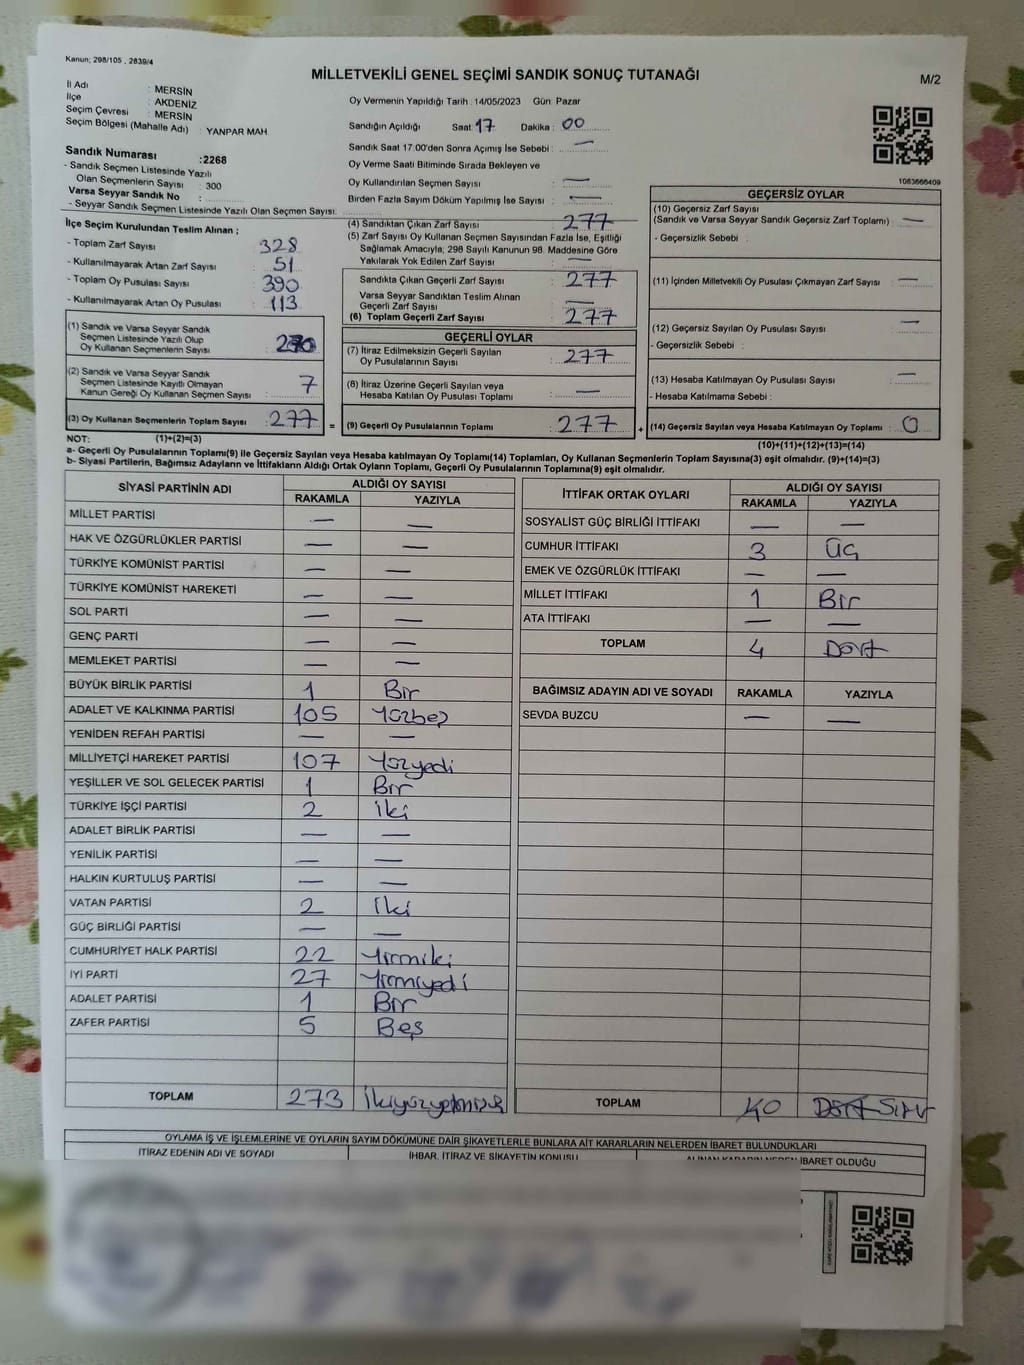 Kanun; 298/105 , 2839/4
MİLLETVEKİLİ GENEL SEÇİMİ SANDIK SONUÇ TUTANAĞI
M/2
İl Adı : MERSİN
İlçe : AKDENİZ
Seçim Çevresi : MERSİN
Seçim Bölgesi (Mahalle Adı) : YANPAR MAH
Sandık Numarası :2268
- Sandık Seçmen Listesinde Yazılı
Olan Seçmenlerin Sayısı : 300
Varsa Seyyar Sandık No :
- Seyyar Sandık Seçmen Listesinde Yazılı Olan Seçmen Sayısı:
Oy Vermenin Yapıldığı Tarih :14/05/2023 Gün: Pazar
Sandığın Açıldığı Saat: 17 Dakika : 00
Sandık Saat 17.00'den Sonra Açımış İse Sebebi : —
Oy Verme Saati Bitiminde Sırada Bekleyen ve
Oy Kullandırılan Seçmen Sayısı : —
Birden Fazla Sayım Döküm Yapılmış İse Sayısı : —
1083666409
İlçe Seçim Kurulundan Teslim Alınan ;
- Toplam Zarf Sayısı : 328
- Kullanılmayarak Artan Zarf Sayısı : 51
- Toplam Oy Pusulası Sayısı : 390
- Kullanılmayarak Artan Oy Pusulası : 113
(1) Sandık ve Varsa Seyyar Sandık
Seçmen Listesinde Yazılı Olup
Oy Kullanan Seçmenlerin Sayısı : 270
(2) Sandık ve Varsa Seyyar Sandık
Seçmen Listesinde Kayıtlı Olmayan
Kanun Gereği Oy Kullanan Seçmen Sayısı : 7
(3) Oy Kullanan Seçmenlerin Toplam Sayısı : 277 =
(4) Sandıktan Çıkan Zarf Sayısı : 277
(5) Zarf Sayısı Oy Kullanan Seçmen Sayısından Fazla İse, Eşitliği
Sağlamak Amacıyla; 298 Sayılı Kanunun 98. Maddesine Göre
Yakılarak Yok Edilen Zarf Sayısı : —
Sandıkta Çıkan Geçerli Zarf Sayısı : 277
Varsa Seyyar Sandıktan Teslim Alınan
Geçerli Zarf Sayısı : —
(6) Toplam Geçerli Zarf Sayısı : 277
GEÇERLİ OYLAR
(7) İtiraz Edilmeksizin Geçerli Sayılan
Oy Pusulalarının Sayısı : 277
(8) İtiraz Üzerine Geçerli Sayılan veya
Hesaba Katılan Oy Pusulası Toplamı : —
(9) Geçerli Oy Pusulalarının Toplamı : 277 +
GEÇERSİZ OYLAR
(10) Geçersiz Zarf Sayısı
(Sandık ve Varsa Seyyar Sandık Geçersiz Zarf Toplamı) : —
- Geçersizlik Sebebi :
(11) İçinden Milletvekili Oy Pusulası Çıkmayan Zarf Sayısı : —
(12) Geçersiz Sayılan Oy Pusulası Sayısı : —
- Geçersizlik Sebebi :
(13) Hesaba Katılmayan Oy Pusulası Sayısı : —
- Hesaba Katılmama Sebebi :
(14) Geçersiz Sayılan veya Hesaba Katılmayan Oy Toplamı : 0
NOT: (1)+(2)=(3)
(10)+(11)+(12)+(13)=(14)
a- Geçerli Oy Pusulalarının Toplamı(9) ile Geçersiz Sayılan veya Hesaba katılmayan Oy Toplamı(14) Toplamları, Oy Kullanan Seçmenlerin Toplam Sayısına(3) eşit olmalıdır. (9)+(14)=(3)
b- Siyasi Partilerin, Bağımsız Adayların ve İttifakların Aldığı Ortak Oyların Toplamı, Geçerli Oy Pusulalarının Toplamına(9) eşit olmalıdır.
SİYASİ PARTİNİN ADI ALDIĞI OY SAYISI
RAKAMLA YAZIYLA
MİLLET PARTİSİ — —
HAK VE ÖZGÜRLÜKLER PARTİSİ — —
TÜRKİYE KOMÜNİST PARTİSİ — —
TÜRKİYE KOMÜNİST HAREKETİ — —
SOL PARTİ — —
GENÇ PARTİ — —
MEMLEKET PARTİSİ — —
BÜYÜK BİRLİK PARTİSİ 1 Bir
ADALET VE KALKINMA PARTİSİ 105 Yüzbeş
YENİDEN REFAH PARTİSİ — —
MİLLİYETÇİ HAREKET PARTİSİ 107 Yüzyedi
YEŞİLLER VE SOL GELECEK PARTİSİ 1 Bir
TÜRKİYE İŞÇİ PARTİSİ 2 İki
ADALET BİRLİK PARTİSİ — —
YENİLİK PARTİSİ — —
HALKIN KURTULUŞ PARTİSİ — —
VATAN PARTİSİ 2 İki
GÜÇ BİRLİĞİ PARTİSİ — —
CUMHURİYET HALK PARTİSİ 22 Yirmiiki
İYİ PARTİ 27 Yirmiyedi
ADALET PARTİSİ 1 Bir
ZAFER PARTİSİ 5 Beş
TOPLAM 273 İkiyüzyetmişüç
İTTİFAK ORTAK OYLARI ALDIĞI OY SAYISI
RAKAMLA YAZIYLA
SOSYALİST GÜÇ BİRLİĞİ İTTİFAKI — —
CUMHUR İTTİFAKI 3 Üç
EMEK VE ÖZGÜRLÜK İTTİFAKI — —
MİLLET İTTİFAKI 1 Bir
ATA İTTİFAKI — —
TOPLAM 4 Dört
BAĞIMSIZ ADAYIN ADI VE SOYADI RAKAMLA YAZIYLA
SEVDA BUZCU — —
TOPLAM
OYLAMA İŞ VE İŞLEMLERİNE VE OYLARIN SAYIM DÖKÜMÜNE DAİR ŞİKAYETLERLE BUNLARA AİT KARARLARIN NELERDEN İBARET BULUNDUKLARI
İTİRAZ EDENİN ADI VE SOYADI İHBAR, İTİRAZ VE ŞİKAYETİN KONUSU ALINAN KARARIN NEDEN İBARET OLDUĞU